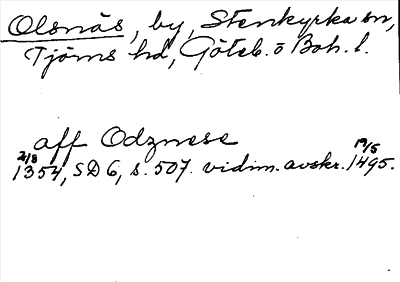 Olsnäs, by, Stenkyrka sn,
Tjörns hd, Göteb. o Boh. l.
aff Odznese
2/8 1354, SD 6, s. 507. vidim. avskr. 19/5 1495.